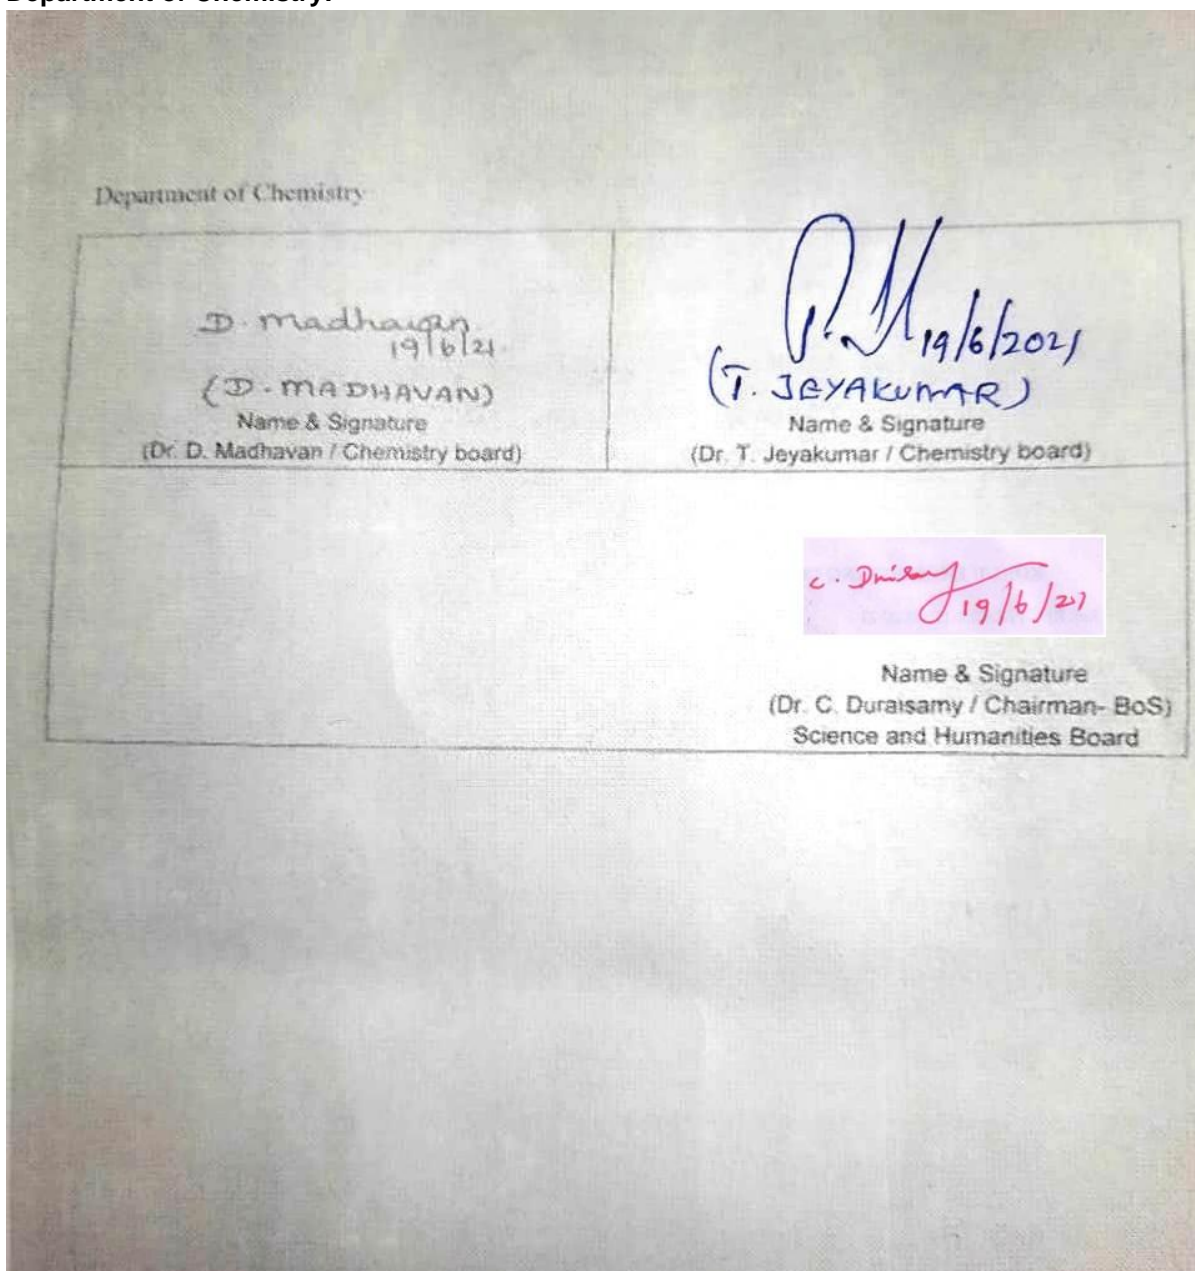 Department of Chemistry:
Department of Chemistry
D. madhavan
19/6/21
(D. MADHAVAN)
Name & Signature
(Dr. D. Madhavan / Chemistry board)
19/6/2021
(T. JEYAKUMAR)
Name & Signature
(Dr. T. Jeyakumar / Chemistry board)
C.
19/6/21
Name & Signature
(Dr. C. Duraisamy / Chairman- BoS)
Science and Humanities Board